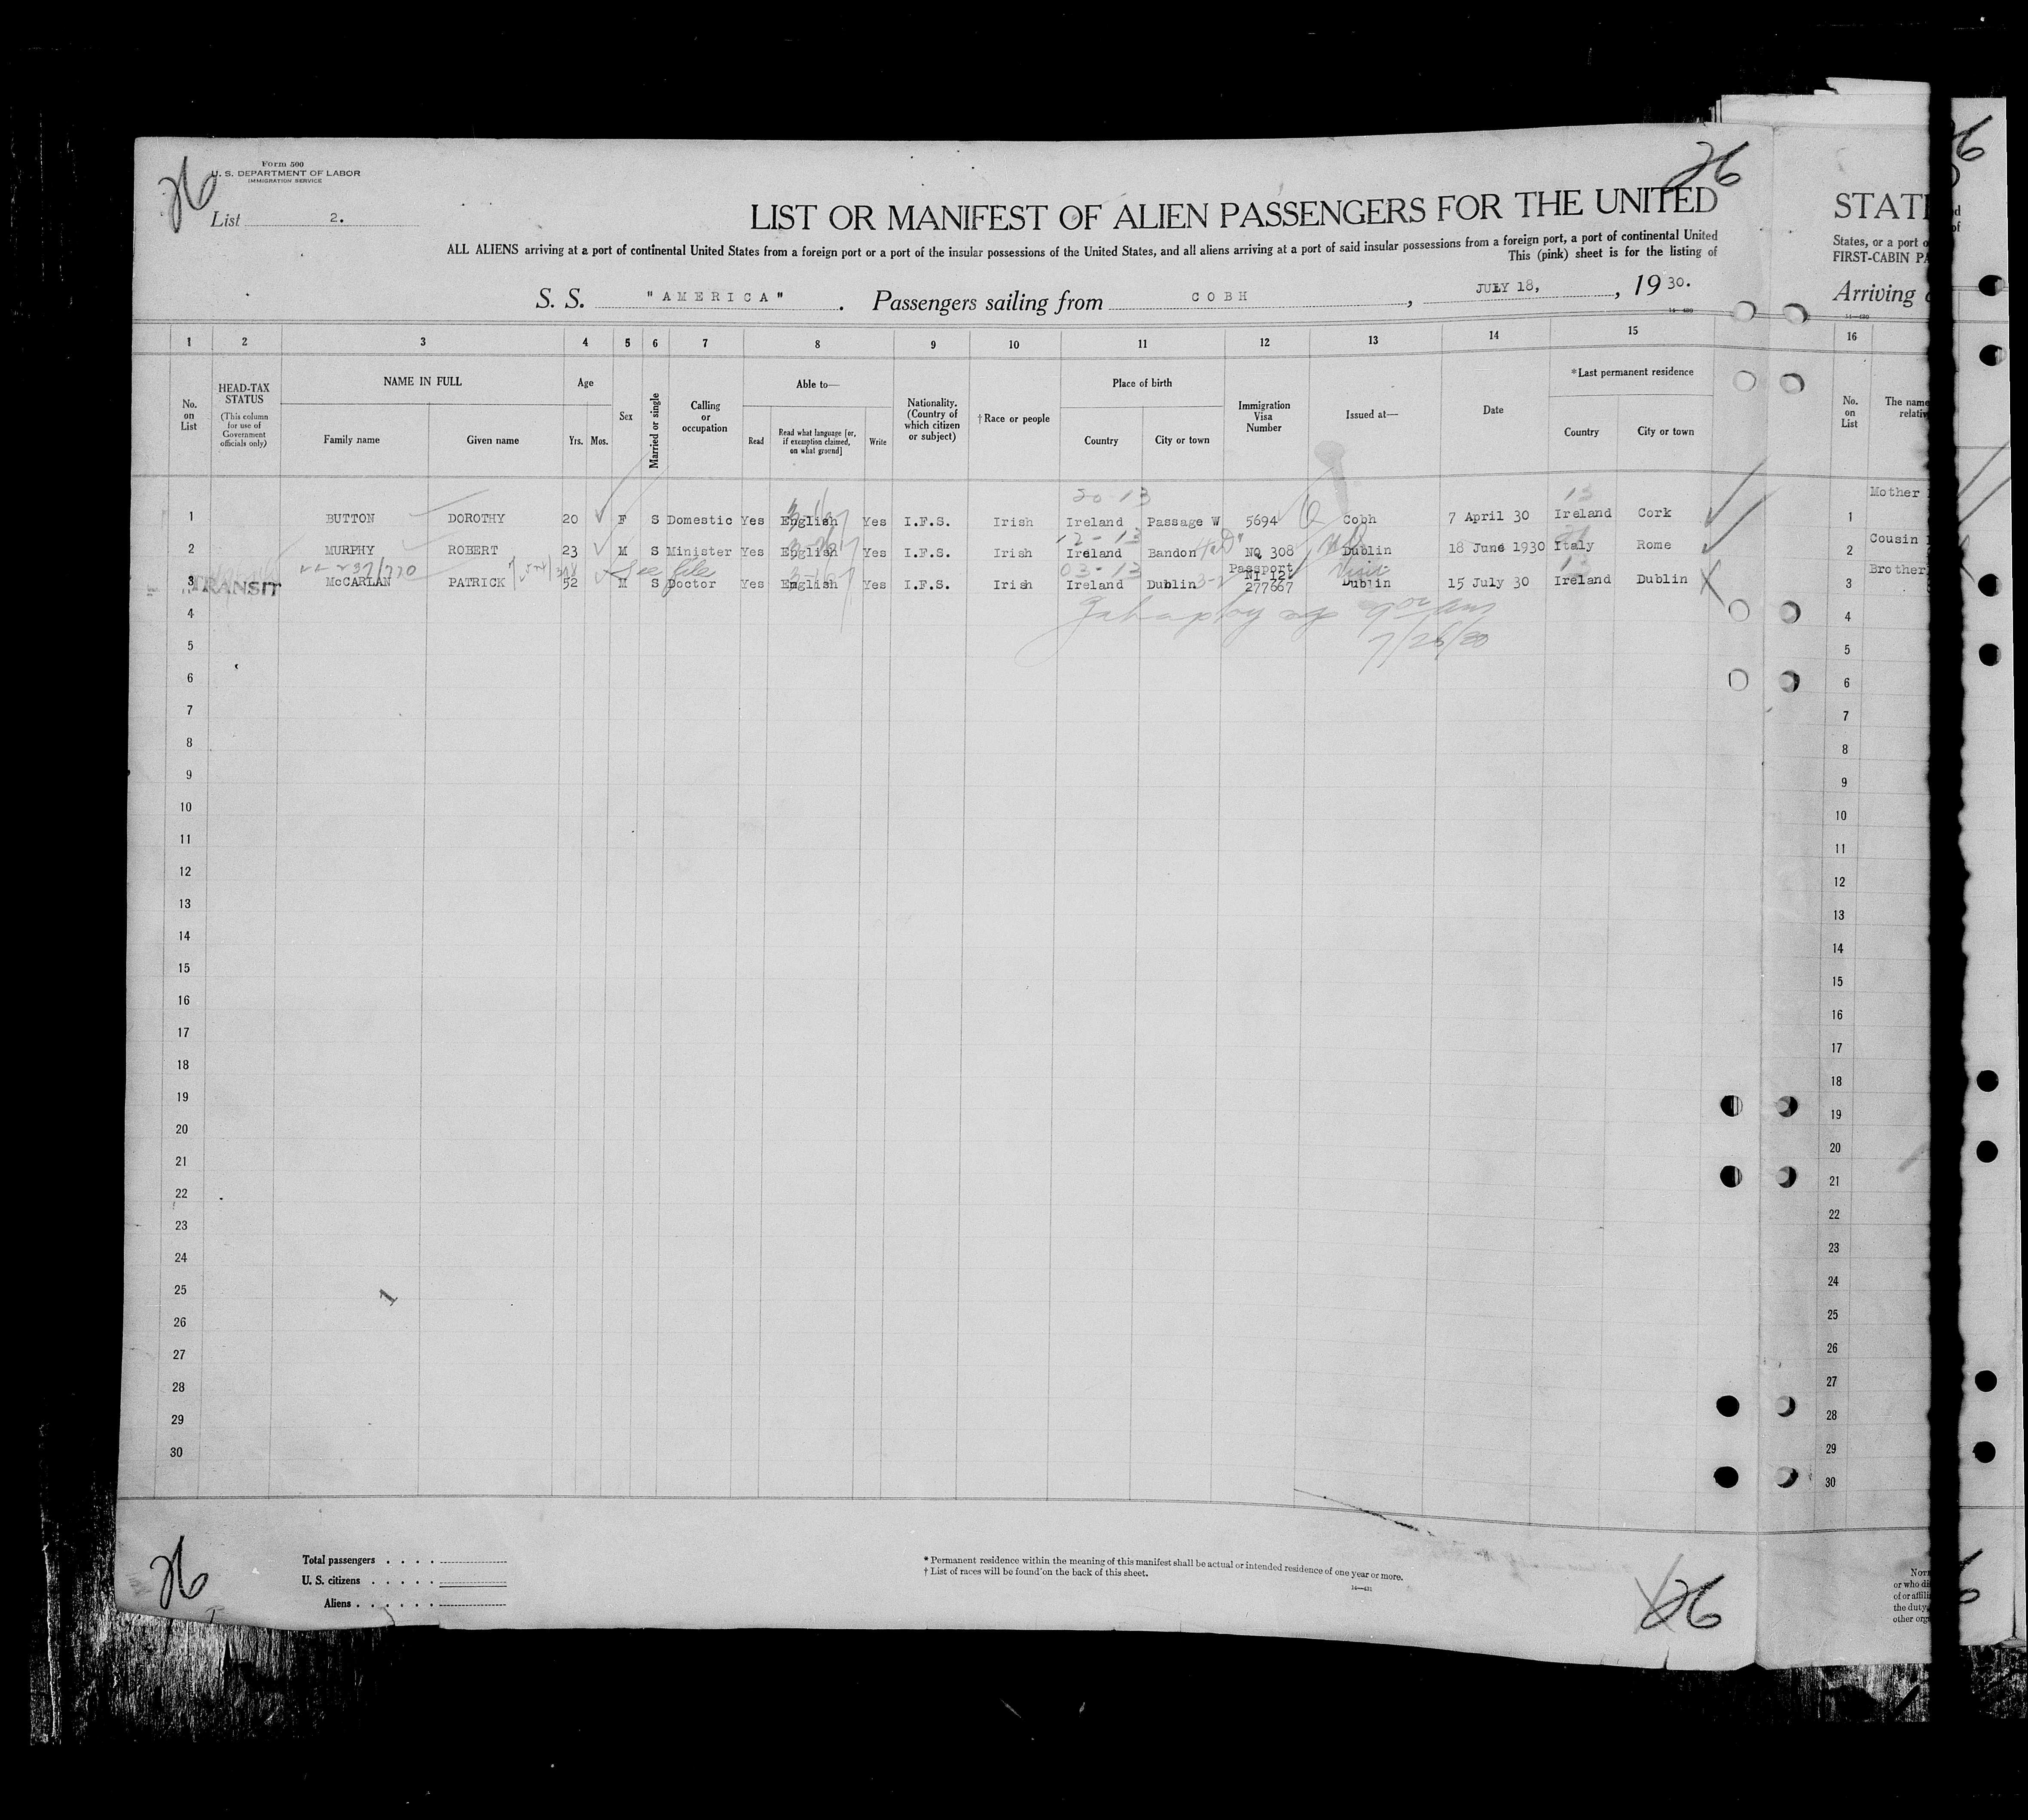 26
Form 500
U. S. DEPARTMENT OF LABOR
IMMIGRATION SERVICE
26
List 2.
LIST OR MANIFEST OF ALIEN PASSENGERS FOR THE UNITED
STAT
ALL ALIENS arriving at a port of continental United States from a foreign port or a port of the insular possessions of the United States, and all aliens arriving at a port of said insular possessions from a foreign port, a port of continental United
States, or a port o
This (pink) sheet is for the listing of
FIRST-CABIN PA
S. S. "AMERICA". Passengers sailing from COBH, JULY 18, 1930.
Arriving
14—430
1 2 3 4 5 6 7 8 9 10 11 12 13 14 15 16
No. on List
HEAD-TAX STATUS
(This column for use of Government officials only)
NAME IN FULL
Family name
Given name
Age
Yrs. Mos.
Sex
Married or single
Calling or occupation
Able to—
Read
Read what language [or, if exemption claimed, on what ground]
Write
Nationality. (Country of which citizen or subject)
†Race or people
Place of birth
Country
City or town
Immigration Visa Number
Issued at—
Date
*Last permanent residence
Country
City or town
No. on List
The name
relativ
20 13
13
1 BUTTON DOROTHY 20 F S Domestic Yes English Yes I.F.S. Irish Ireland Passage W 5694 Cobh 7 April 30 Ireland Cork 1 Mother
12-13
2 MURPHY ROBERT 23 M S Minister Yes English Yes I.F.S. Irish Ireland Bandon NQ 308 Dublin 18 June 1930 Italy Rome 2 Cousin
See file
03-13
Passport
Visit
13
TRANSIT
3 McCARLAN PATRICK 52 M S Doctor Yes English Yes I.F.S. Irish Ireland Dublin NI 12 277667 Dublin 15 July 30 Ireland Dublin 3 Brother
4 4
7/26/30
5 5
6 6
7 7
8 8
9 9
10 10
11 11
12 12
13 13
14 14
15 15
16 16
17 17
18 18
19 19
20 20
21 21
22 22
23 23
24 24
25 25
26 26
27 27
28 28
29 29
30 30
26
Total passengers . . . .
U. S. citizens . . . . .
Aliens . . . . . .
* Permanent residence within the meaning of this manifest shall be actual or intended residence of one year or more.
† List of races will be found on the back of this sheet.
14—431
26
or who di
of or affili
the duty,
other orga